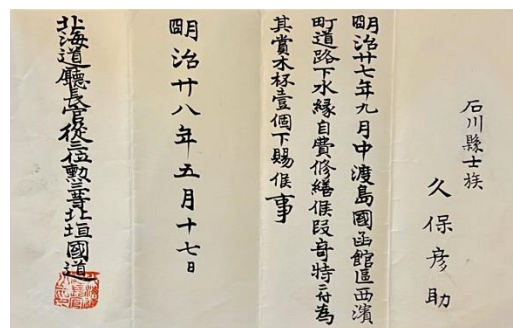 石川縣士族
久保彦助
明治廿七年九月中渡島國函館區西濱
町道路下水縁自費修繕候段奇特ニ付為
其賞木杯壹個下賜候事
明治廿八年五月十七日
北海道廳長官從三位勲三等北垣國道